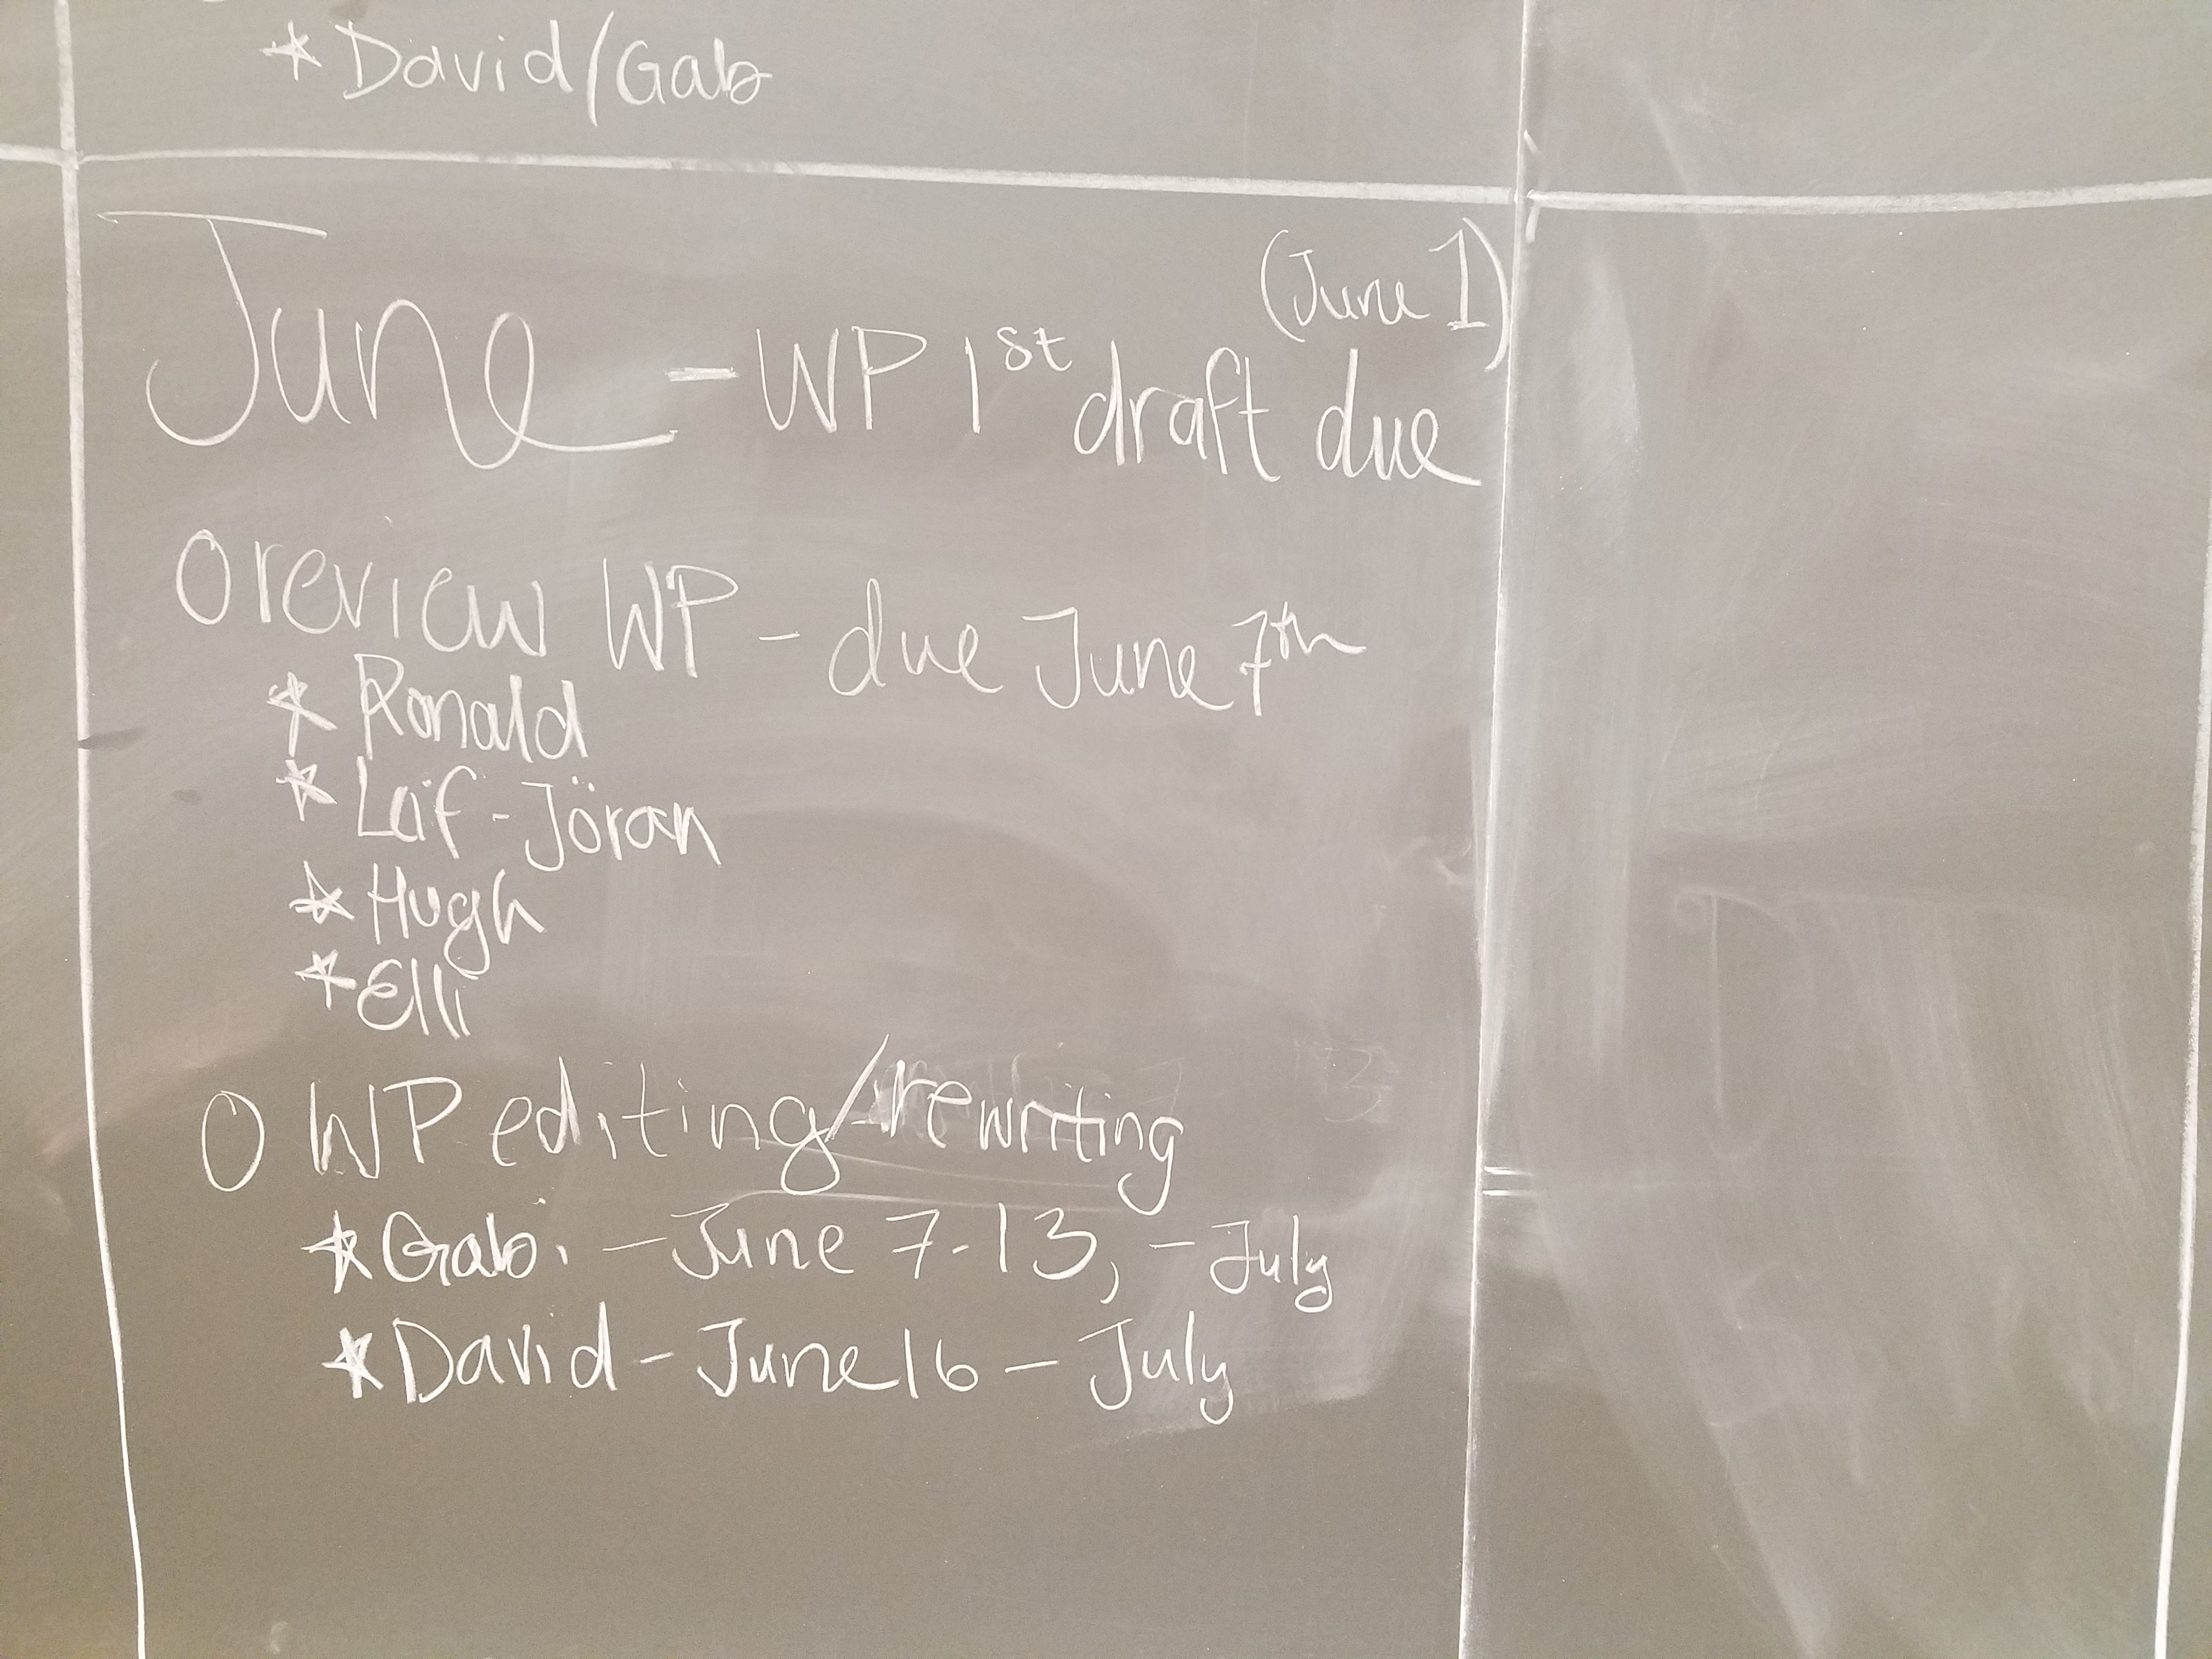 * David/Gab
(June 1)
June - WP 1st draft due
O review WP - due June 7th
* Ronald
* Laif-Jöran
* Hugh
* Elli
O WP editing/rewriting
* Gab. - June 7-13, - July
* David - June 16 - July